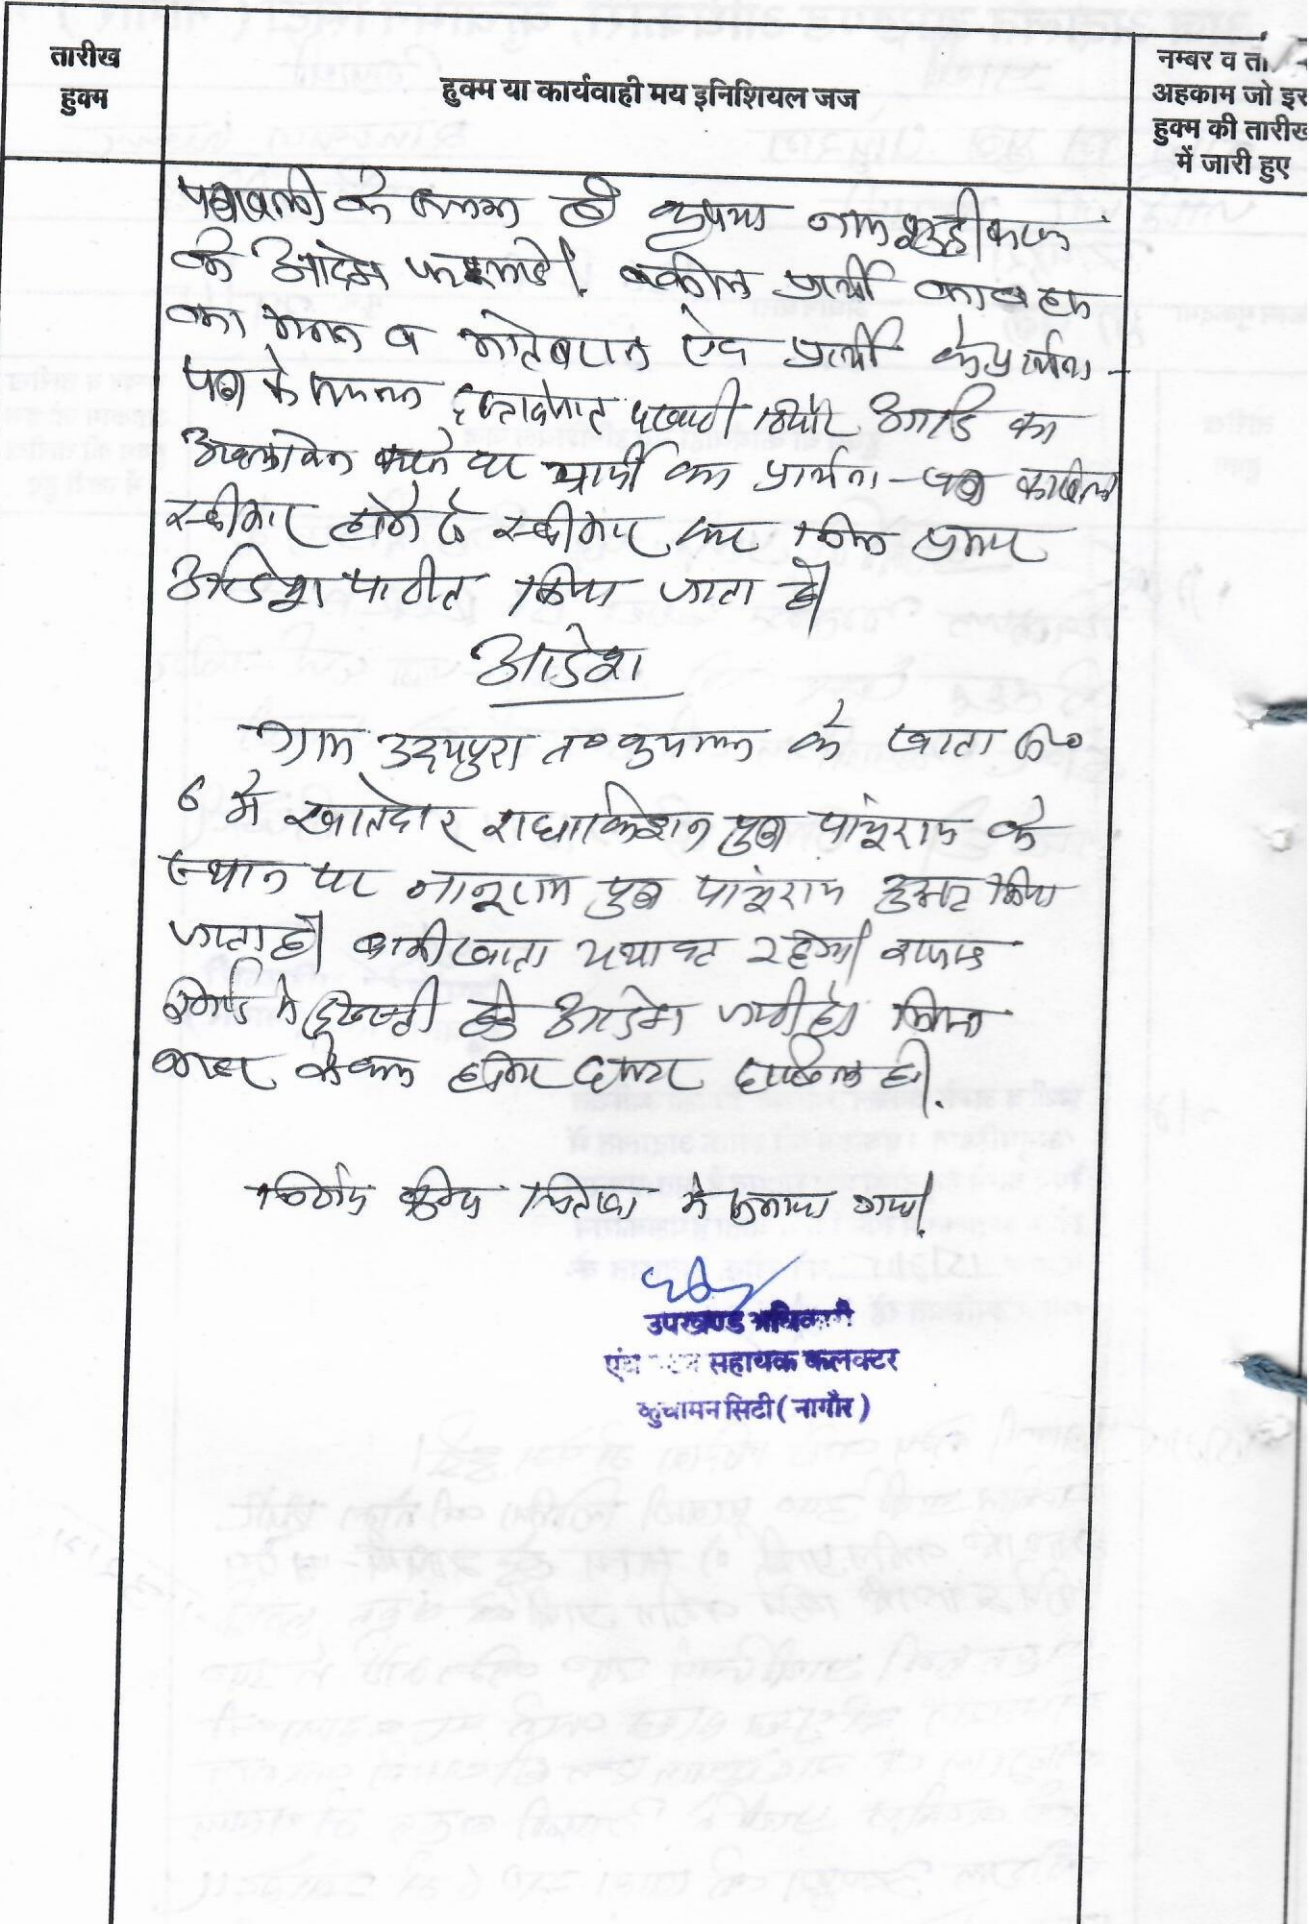 तारीख
हुक्म
हुक्म या कार्यवाही मय इनिशियल जज
नम्बर व ता
अहकाम जो इस
हुक्म की तारीख
में जारी हुए
पत्रावली के संलग्न है कृपया नाम शुद्धीकरण
के आदेश फरमावे। वकील प्रार्थी का बहस
का मनन व प्रार्थी के प्रार्थना-
पत्र के संलग्न दस्तावेजात पटवारी रिपोर्ट आदि का
अवलोकन करने पर प्रार्थी का प्रार्थना-पत्र काबिल
स्वीकार होने से स्वीकार कर निम्न प्रकार
आदेश पारीत किया जाता है।
आदेश
ग्राम उदयपुरा त० कुचामन के खाता सं०
6 में खातेदार राधाकिशन पुत्र पांचुराम के
स्थान पर नानूराम पुत्र पांचुराम शुद्ध किया
जाता है। बाकी खाता यथावत रहेगा। राजस्व
रिकार्ड में दुरूस्ती हेतु आदेश जारी हो।
होकर दफ्तर दाखिल हो।
निर्णय में सुनाया गया।
उपखण्ड अधिकारी
एवं सहायक कलक्टर
कुचामन सिटी ( नागौर )